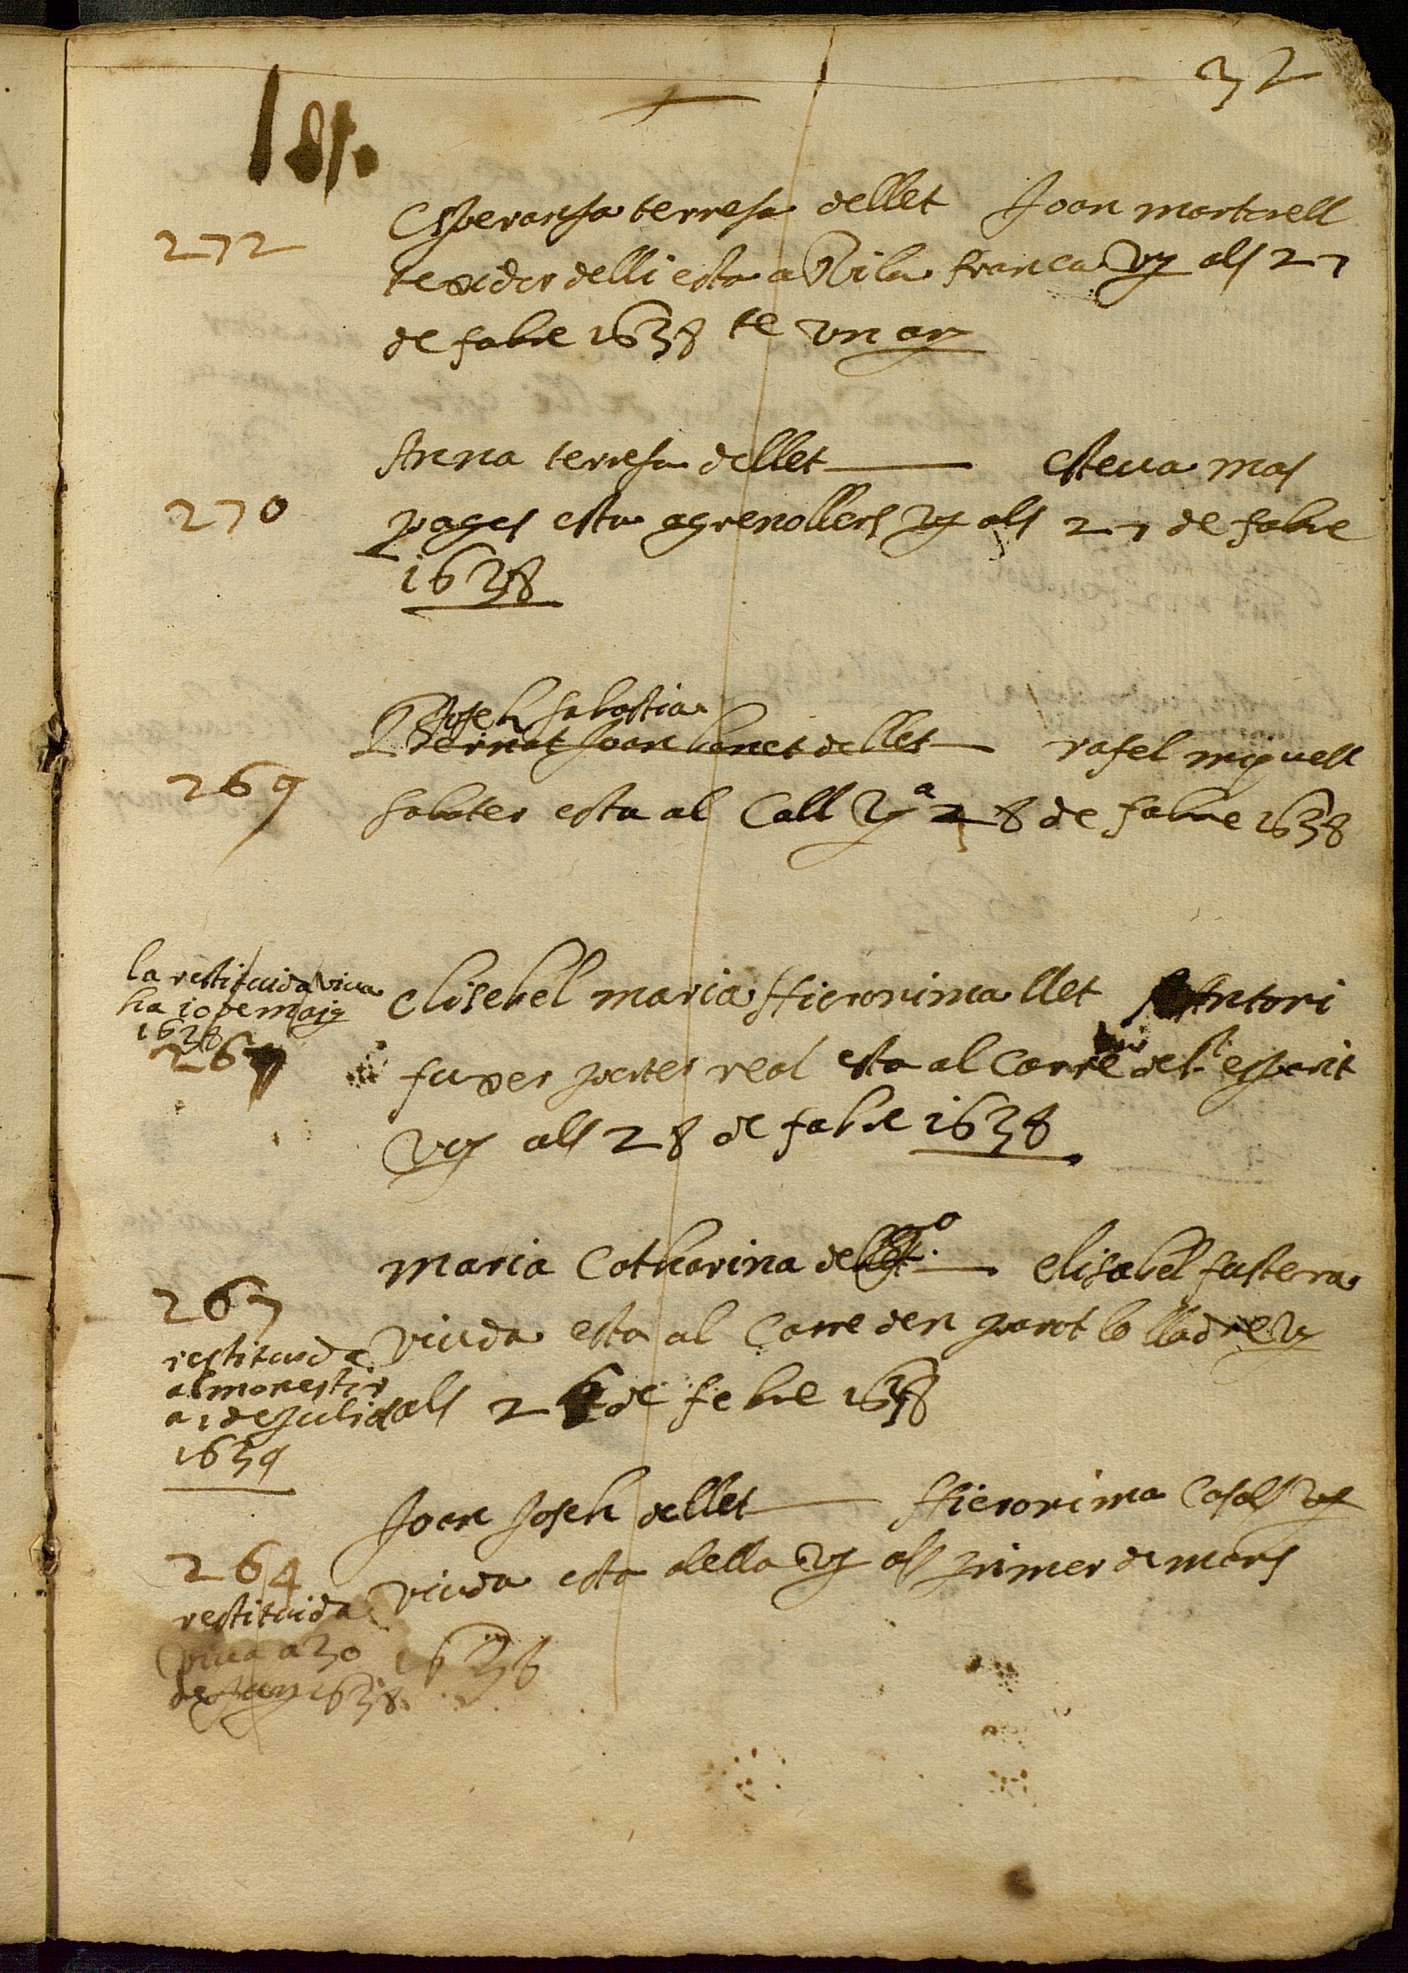 32
181.
272
Esperansa terresa dellet Joan martorell
texidor delli esta a Vila franca vy als 27
de fabre 1638 te un any
270
Anna terresa dellet esteva mas
pages esta agrenollers vy als 27 de fabre
1638
Joseh sabastia
269
Bernat Joan benet dellet rafel miquell
sabater esta al Call vy a 28 de fabre 1638
la restituida viva
ha 10 de maig
1638
267
elisebel maria Hieronima llet Antoni
fuxer porter real esta al Carre del st esparit
vy als 28 de fabre 1638
267
restituida
al monestir
a 1 de Juliol
1639
maria Catharina de elisabel fustera
viuda esta al Carre den parot lo lladre vy
als 26 de febre 1638
264
restituida
viva a 30
de Juny 1638
Joan Joseh dellet Hieronima Casals vy
viuda esta alella vy als primer de mars
1638